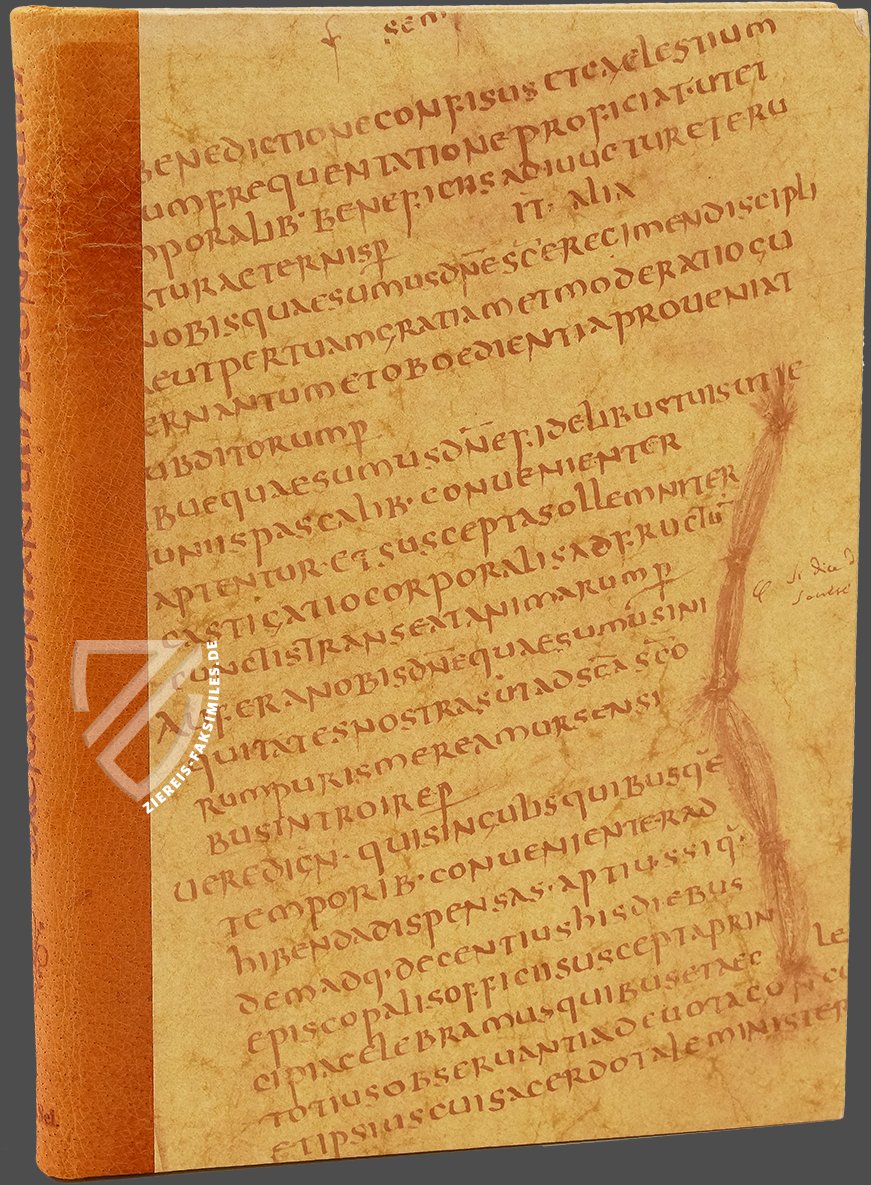 sem
BENEDICTIONE CONFISUS ETCAELESTIUM
UMFREQUENTATIONE PROFICIAT·UTET
PORALIB· BENEFICIIS ADIUUCTURETERU
IT· ALIA
TURAETERNISP
NOBISQUAESUMUSDNESCERECIMENDISCIPLI
EUTPERTUAMGRATIAMETMODERATIOGU
ERNANTUMETOBOEDIENTIAPROUENIAT
UBDITORUMP
BUEQUAESUMUSDNEFIDELIBUSTUISUTIE
UNIISPASCALIB· CONUENIENTER
APTENTUR· ETSUSCEPTASOLLEMNITER
CASTIGATIOCORPORALISADFRUCTU
CUNCTISTRANSEATANIMARUMP
AUFERANOBISDNEQUAESUMUSINI
QUITATESNOSTRASUTADSCASCO
RUMPURISMEREAMURSENSI
BUSINTROIREP
UEREDIGN· QUISINGULISQUIBUSQE
TEMPORIB· CONUENIENTERAD
HIBENDADISPENSAS· APTIUSSIQ·
DEMADQ·DECENTIUSHISDIEBUS
EPISCOPALISOFFICIISUSCEPTAPRIN
CIPIACELEBRAMUSQUIBUSETAEC LE
TOTIUSOBSERUANTIADEUOTACON
ETIPSIUSCUISACERDOTALEMINISTER
ZIEREIS-FAKSIMILES.DE